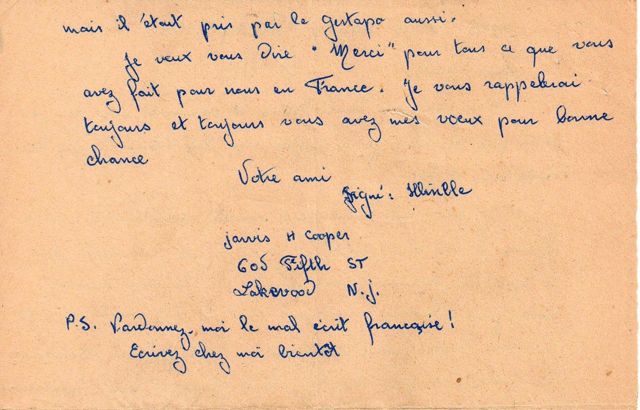 mais il était pris par la gestapo aussi.
Je veux vous dire "Merci" pour tous ce que vous
avez fait pour nous en France. Je vous rappelerai
toujours et toujours vous avez mes voeux pour bonne
chance
Votre ami
Signé:
Jarvis H Cooper
605 Fifth ST
Lakewood N.J.
P.S. Pardonnez-moi le mal écrit française!
Ecrivez chez moi bientôt